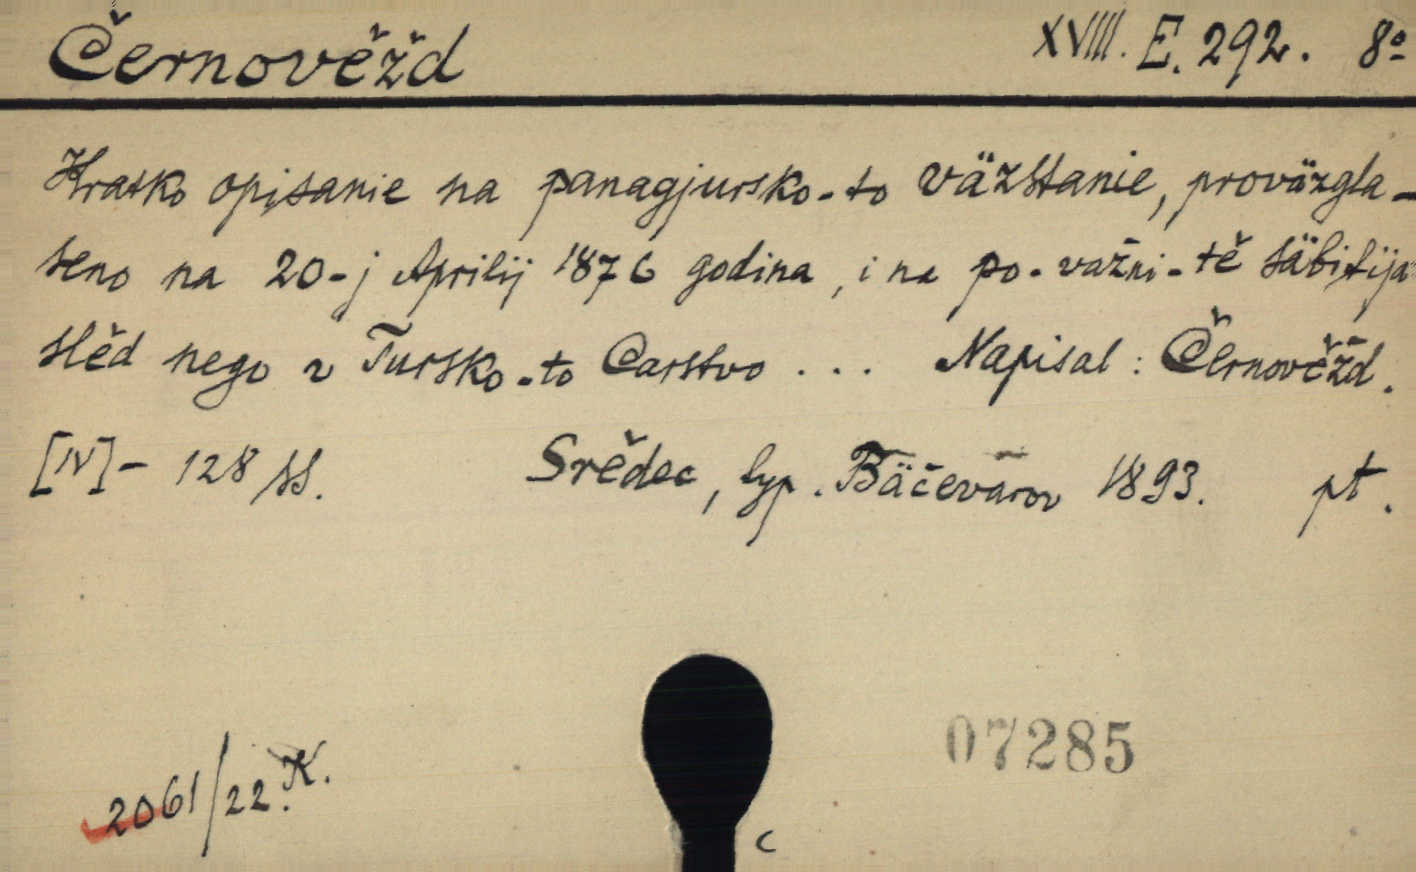 Černověžd XVIII. E. 292. 8º
Kratko opisanie na panagjursko-to väzstanie, proväzgla-
seno na 20-j Aprilij 1876 godina, i na po-važni-tě säbitija
slěd nego v Tursko-to Carstvo ... Napisal: Černověžd.
[IV]- 128 ss. Srědec, typ. Bäčevarov 1893. pt.
07285
2061/22. K.
c